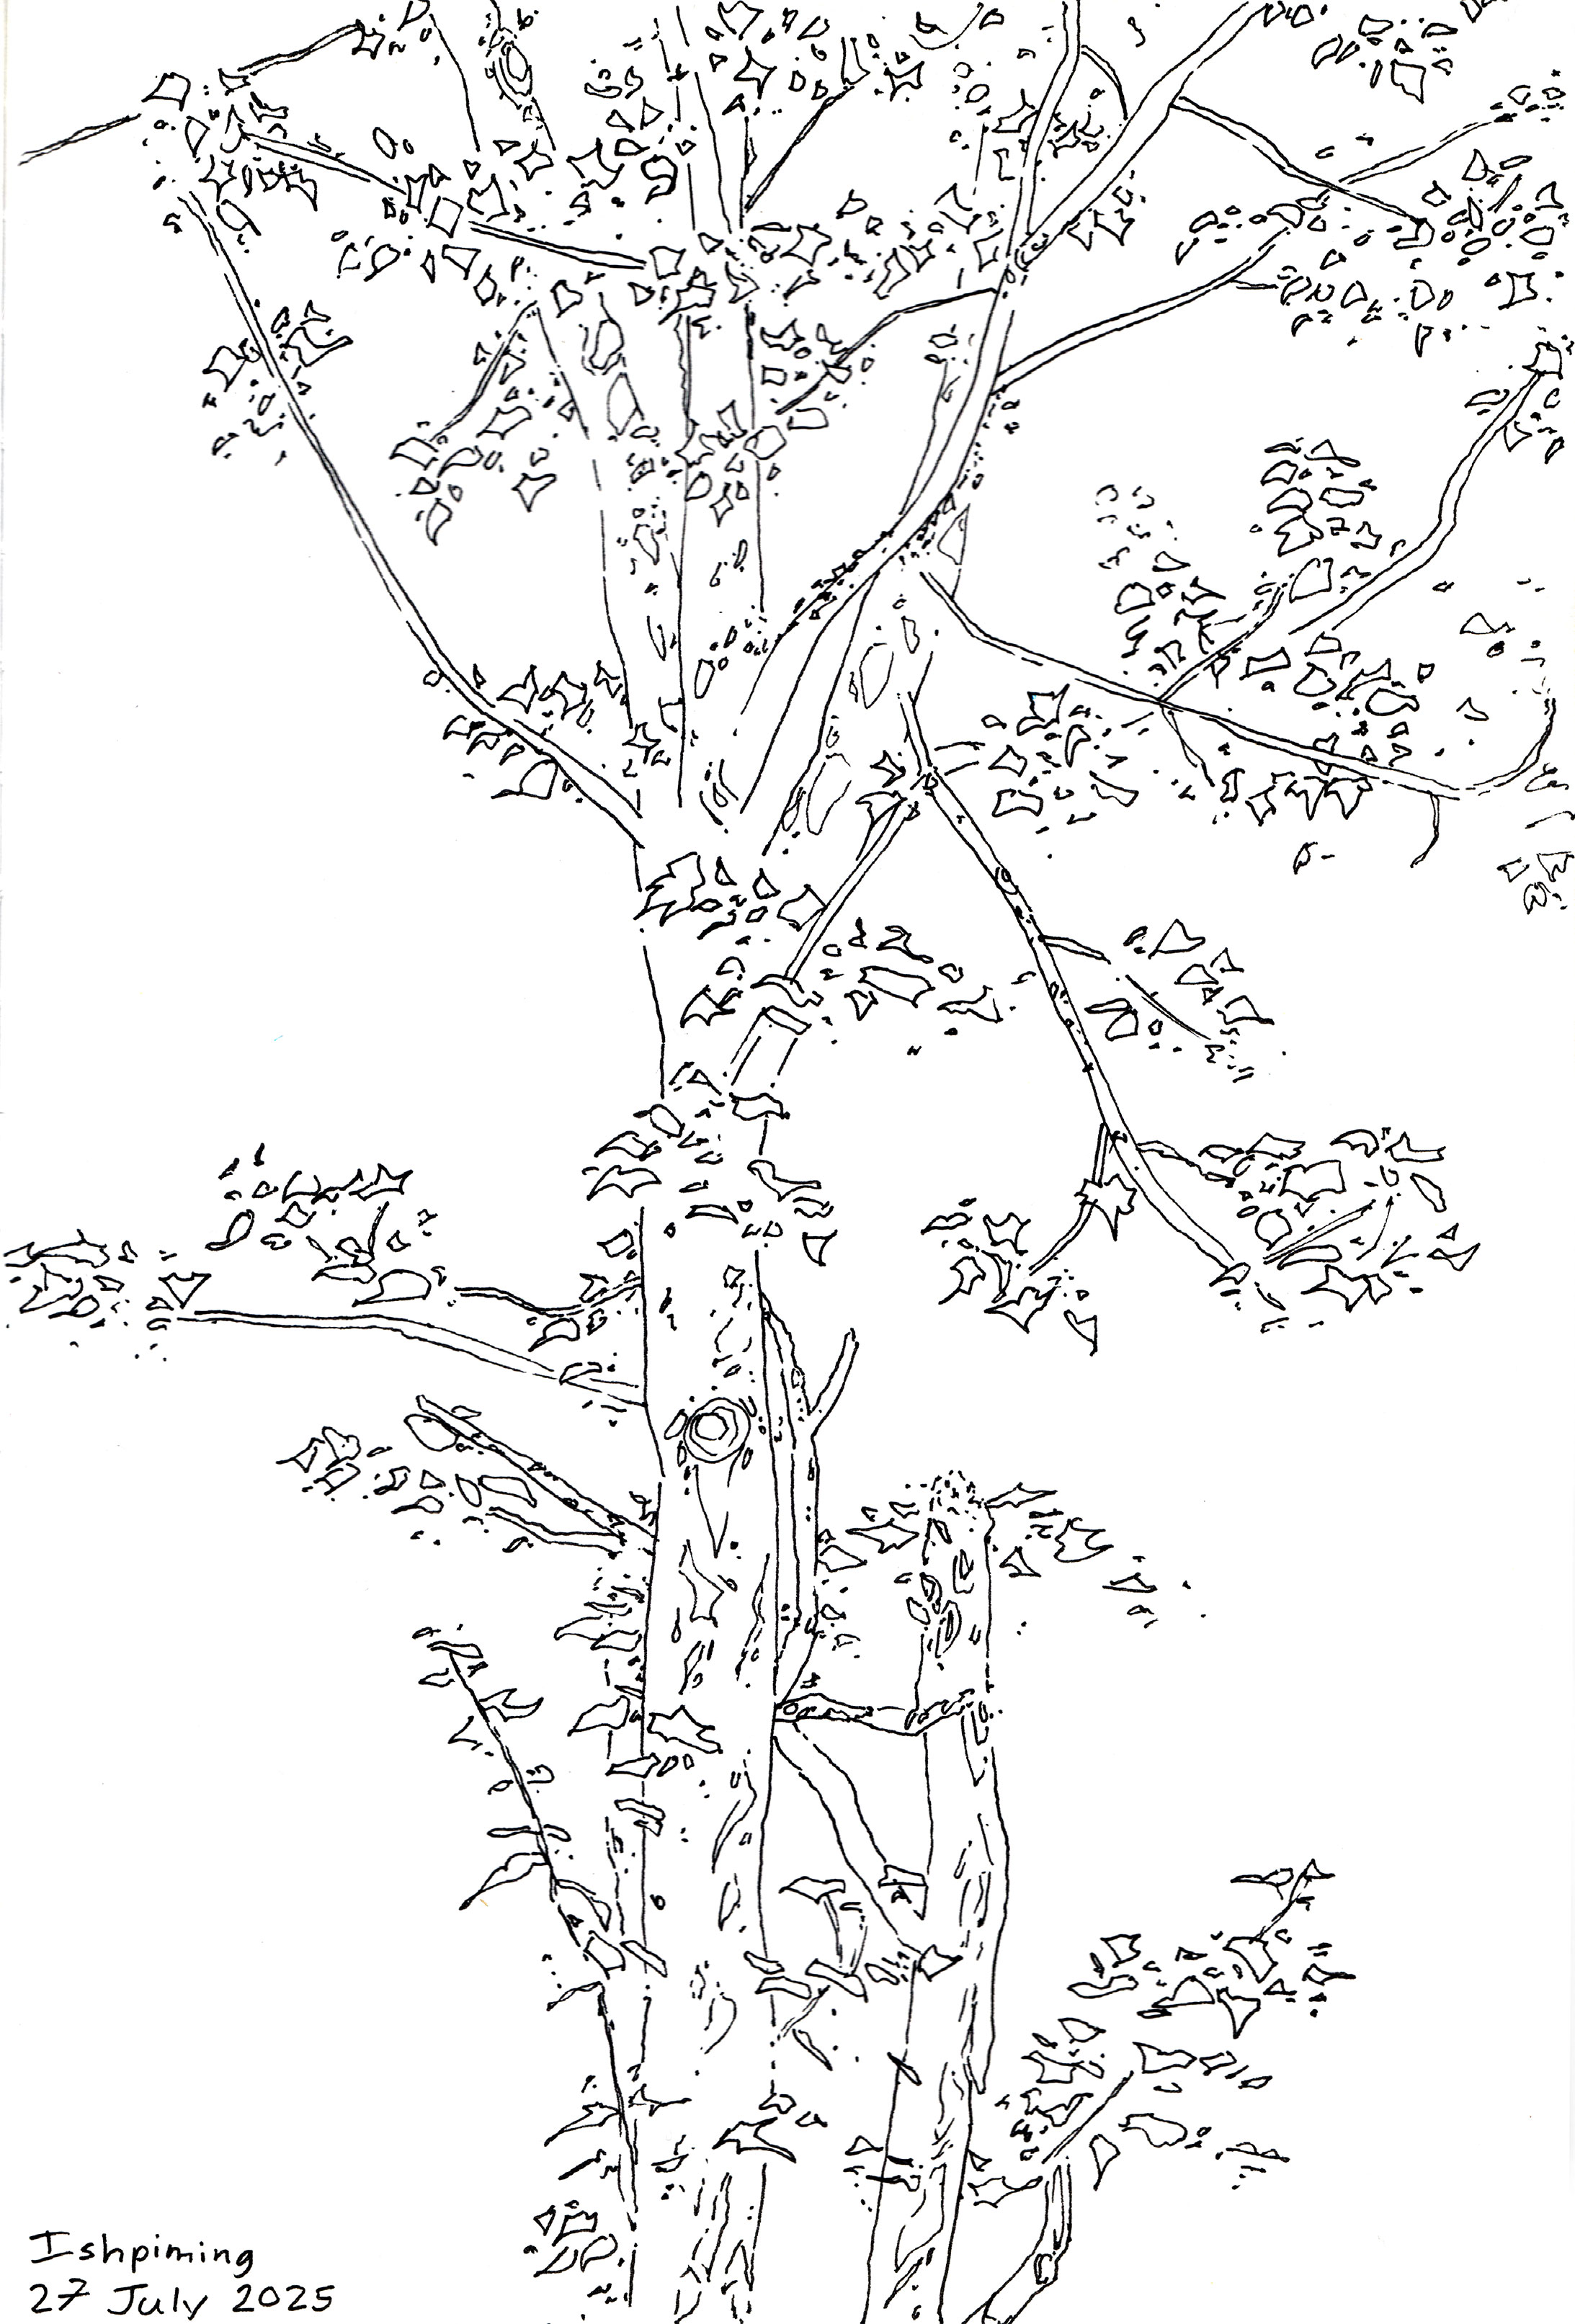 Ishpiming
27 July 2025